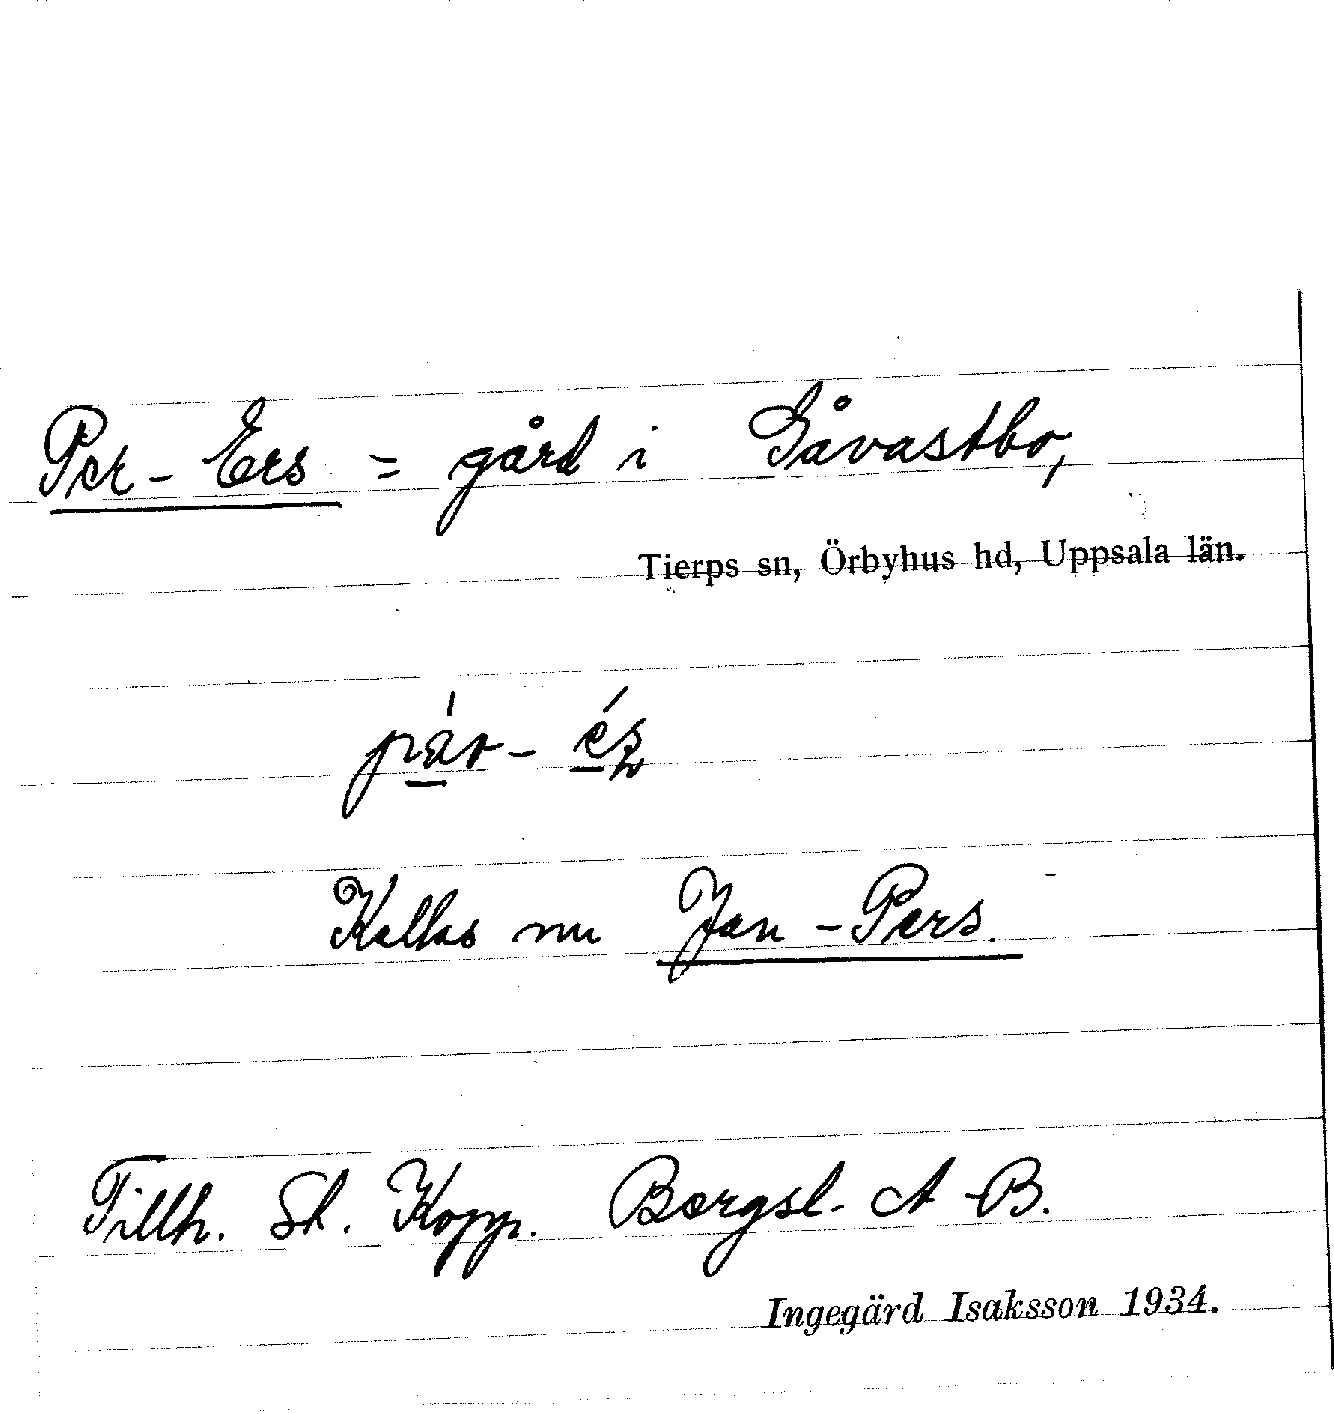 Per-Ers = gård i Gåvastbo,
Tierps sn, Örbyhus hd, Uppsala län.
Kallas nu Jan-Pers.
Tillh. St. Kopp. Bergsl. A-B.
Ingegärd Isaksson 1934.